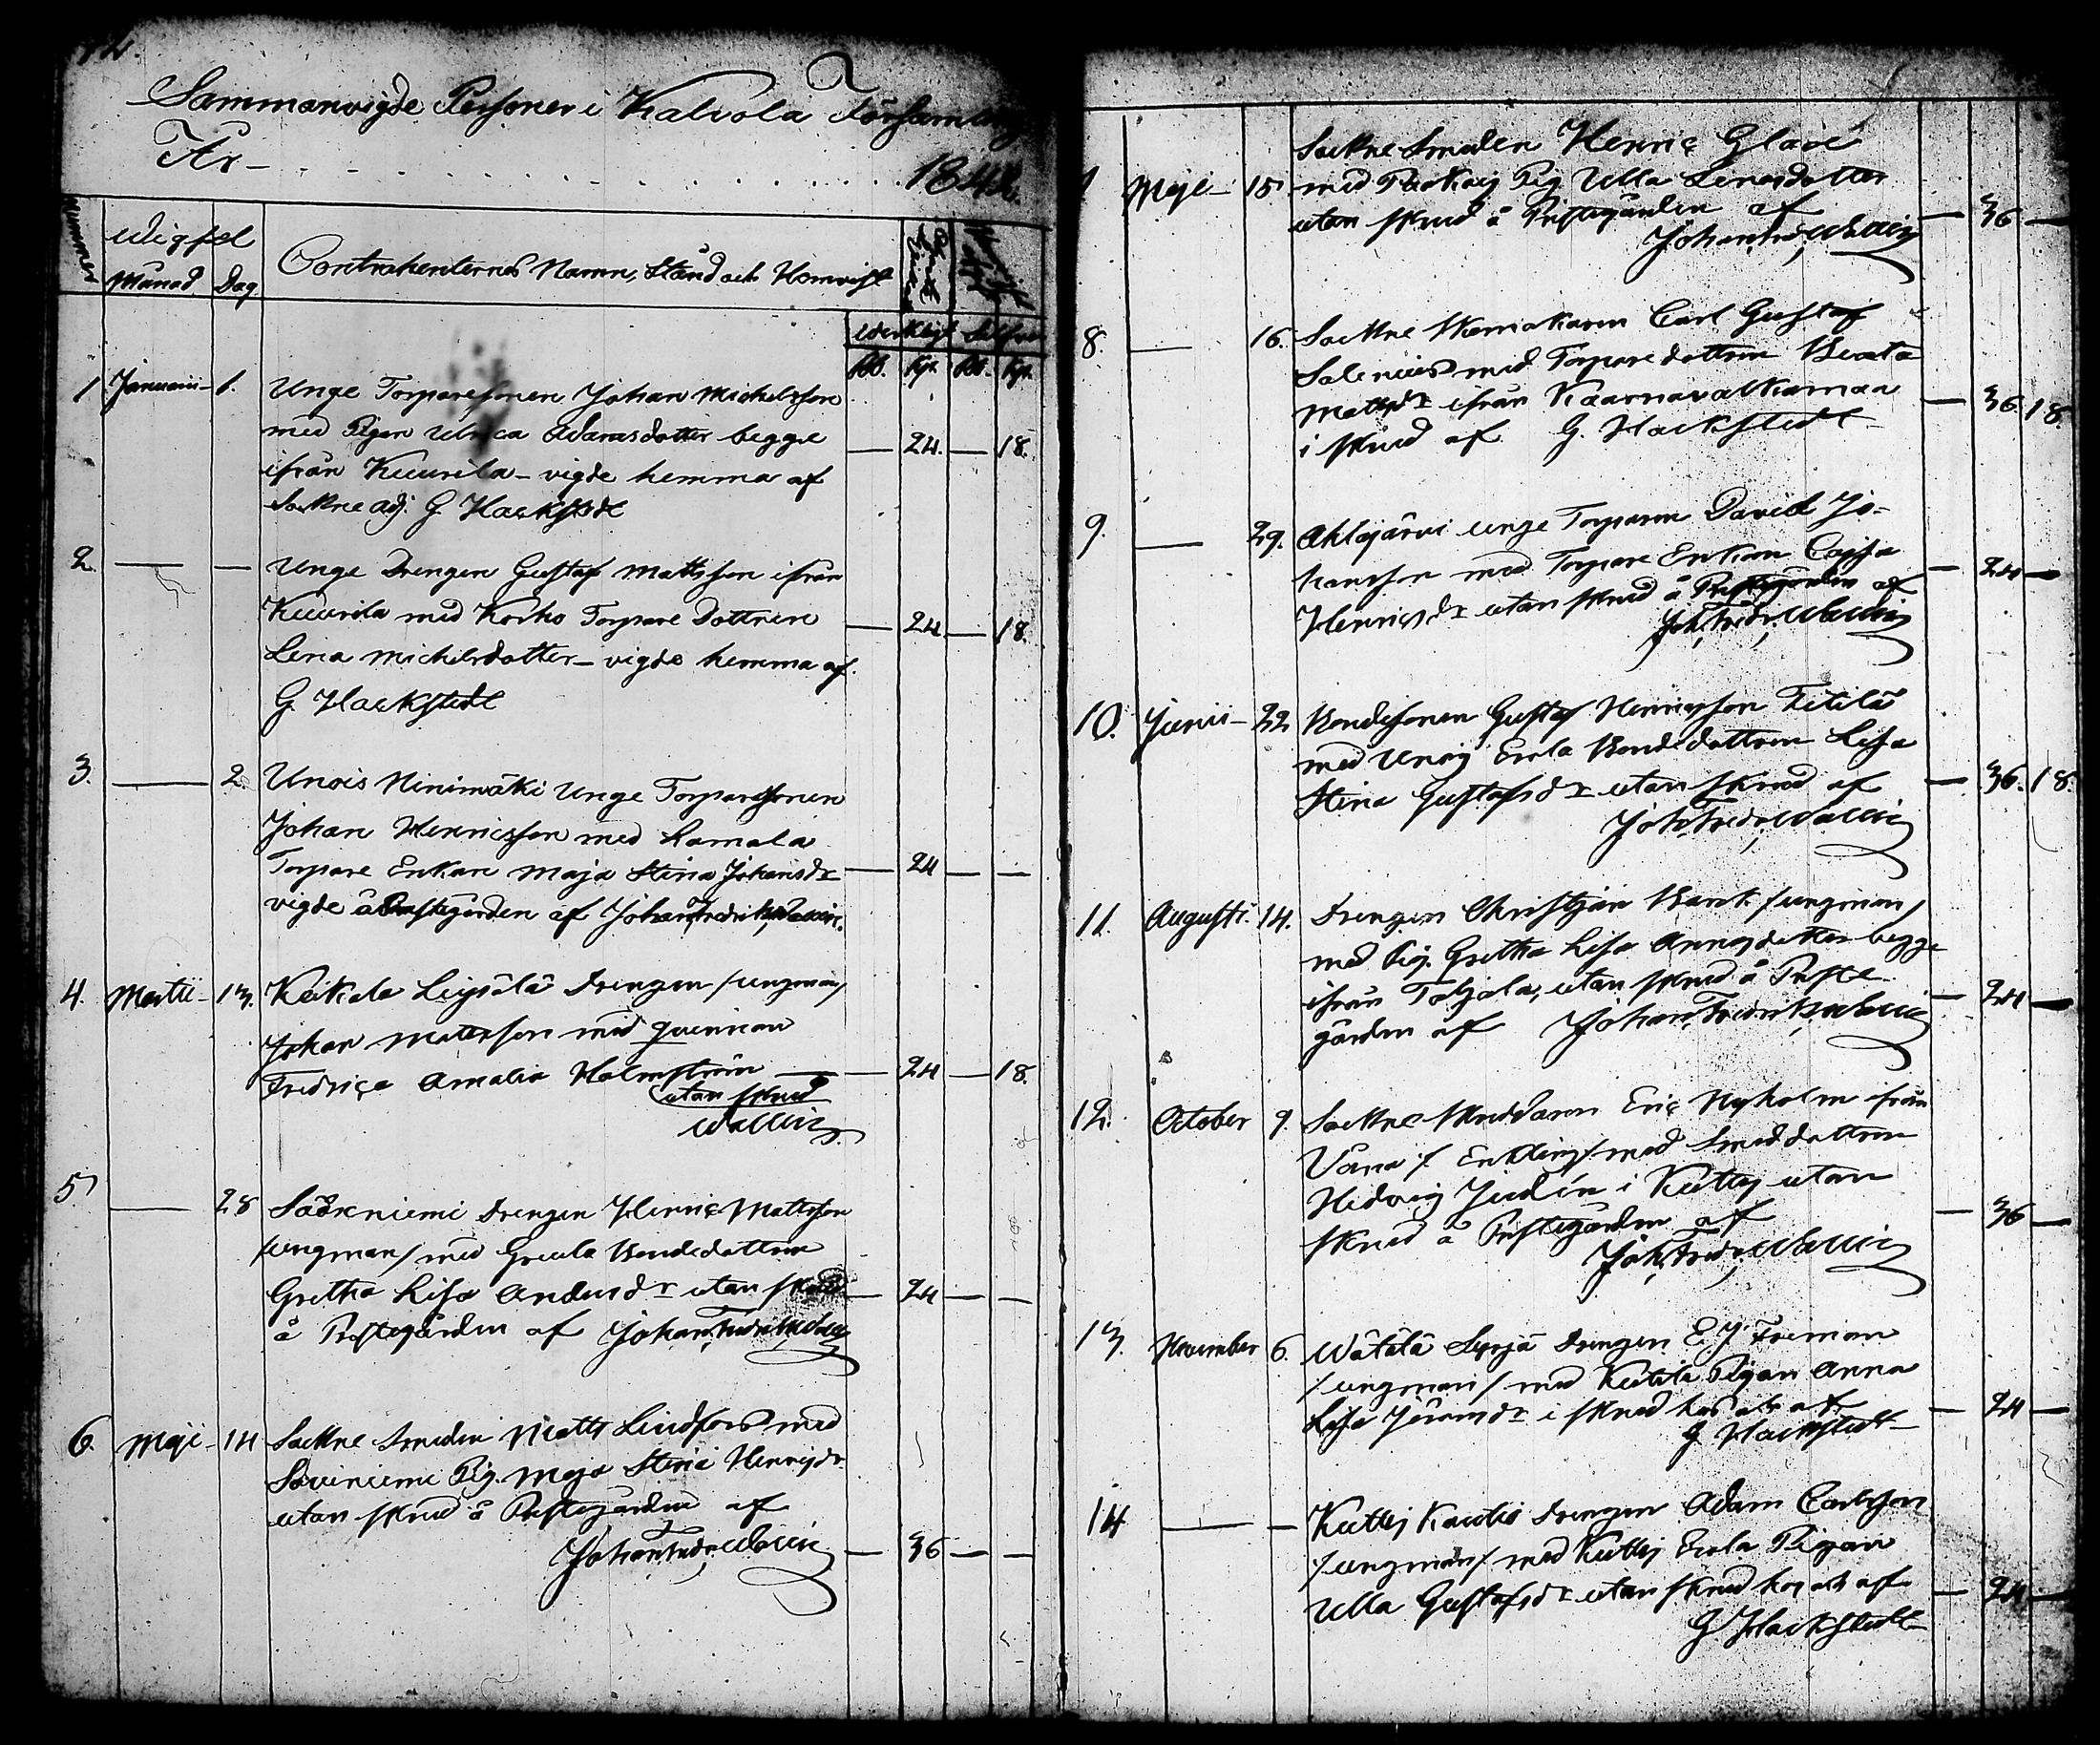 Sammanvigde Personer i Kalvola Församling
År - 184
Nummer
Wigsel
Månad. Dag.
Contrahenternes Namn, Stånd och Hemvist
Werkligt Silfver
Rbl. Kop. Rbl. Kop.
1 Januarii - 1. Unge Torparesonen Johan Michelsson
med Pigan Ulrica Adamsdotter begge — 24. — 18.
ifrån Kuurila - vigde hemma af
Sockne adj. G. Hackstedt
2. — — Unge Drengen Gustaf Mattsson ifrån
Kuurila med Korko Torpare Dottren — 24 — 18.
Lena Michelsdotter - vigde hemma af
G. Hackstedt
3. — 2. Unois Ninimäki Unge Torparesonen
Johan Henricsson med Lamala
Torpare Enkan Maja Stina Johansdr — 24 — —
vigde å Prestegården af Johan Fredrik Wallin.
4. Martii - 13. Keikala Drengen /ungman/
Johan Matsson med qvinnan
Fredrica Amalia Holmström — 24 — 18.
utan skrud
Wallin
5 — 28 Sääxniemi Drengen Henric Mattsson
/ungman/ med Greula Bondedottren
Gretha Lisa Andersdr utan skrud — 24 — —
å Prestegården af Johan Fredrik Wallin
6. Maji - 14 Sockne Smeden Matts Lindfors med
Saviniemi Pig. Maja Stina Henricsdr.
utan skrud å Prestegården af
Johan Fredr. Wallin — 36 — —
Sockne Smeden Henric Glad
Maji - 15. med Pig Ulla Lenasdotter
utan skrud å Prestegården af — 36 —
Johan Fr. Wallin
8. — 16. Sockne Skomakaren Carl Gustaf
Salenius med Torpare dottren Beata
Mattsdr ifrån Kaarnavalkamaa — 36. 18.
i skrud af G. Hackstedt
9. — 29. Ahlajärvi unge Torparen David Jo-
hansson med Torpare Enkan Cajsa — 24 —
Henricsdr utan skrud å Prestegården af
Joh. Fredr. Wallin
10. Junii - 22 Bondesonen Gustaf Henricsson Titilä
med Eerola Bondedottren Lisa
Stina Gustafsdr utan skrud af — 36. 18.
Joh. Fredr. Wallin
11. Augusti. 14. Drengen Christjan /ungman/
med Pig. Gretha Lisa Annasdotter begge
ifrån Taljala, utan skrud å Preste- — 24 —
gården af Johan Fredrik Wallin
12. October 9. Sockne Skräddaren Eric Nyholm ifrån
Vånå / Enkling / med Smeddottren
Hedvig Judin i Kutisj utan
skrud å Prestegården af — 36 —
Joh. Fredr. Wallin
13. November 6. Wätälä Syrjä Drengen E. J. Freman
/ungman/ med Kutila Pigan Anna
Lisa Jöransdr i skrud hos och af — 24 —
G Hackstedt
14 — — Kutisj Kautio Drengen Adam Carlsson
/ungman/ med Kutisj Eerola Pigan
Ulla Gustafsdr utan skrud hos och af — 24 —
G Hackstedt